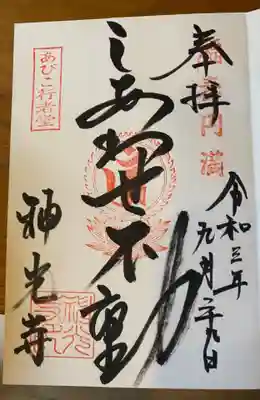 奉拝
円満
令和三年
九月二十九日
しあわせ不動
あびこ行者堂
神光寺